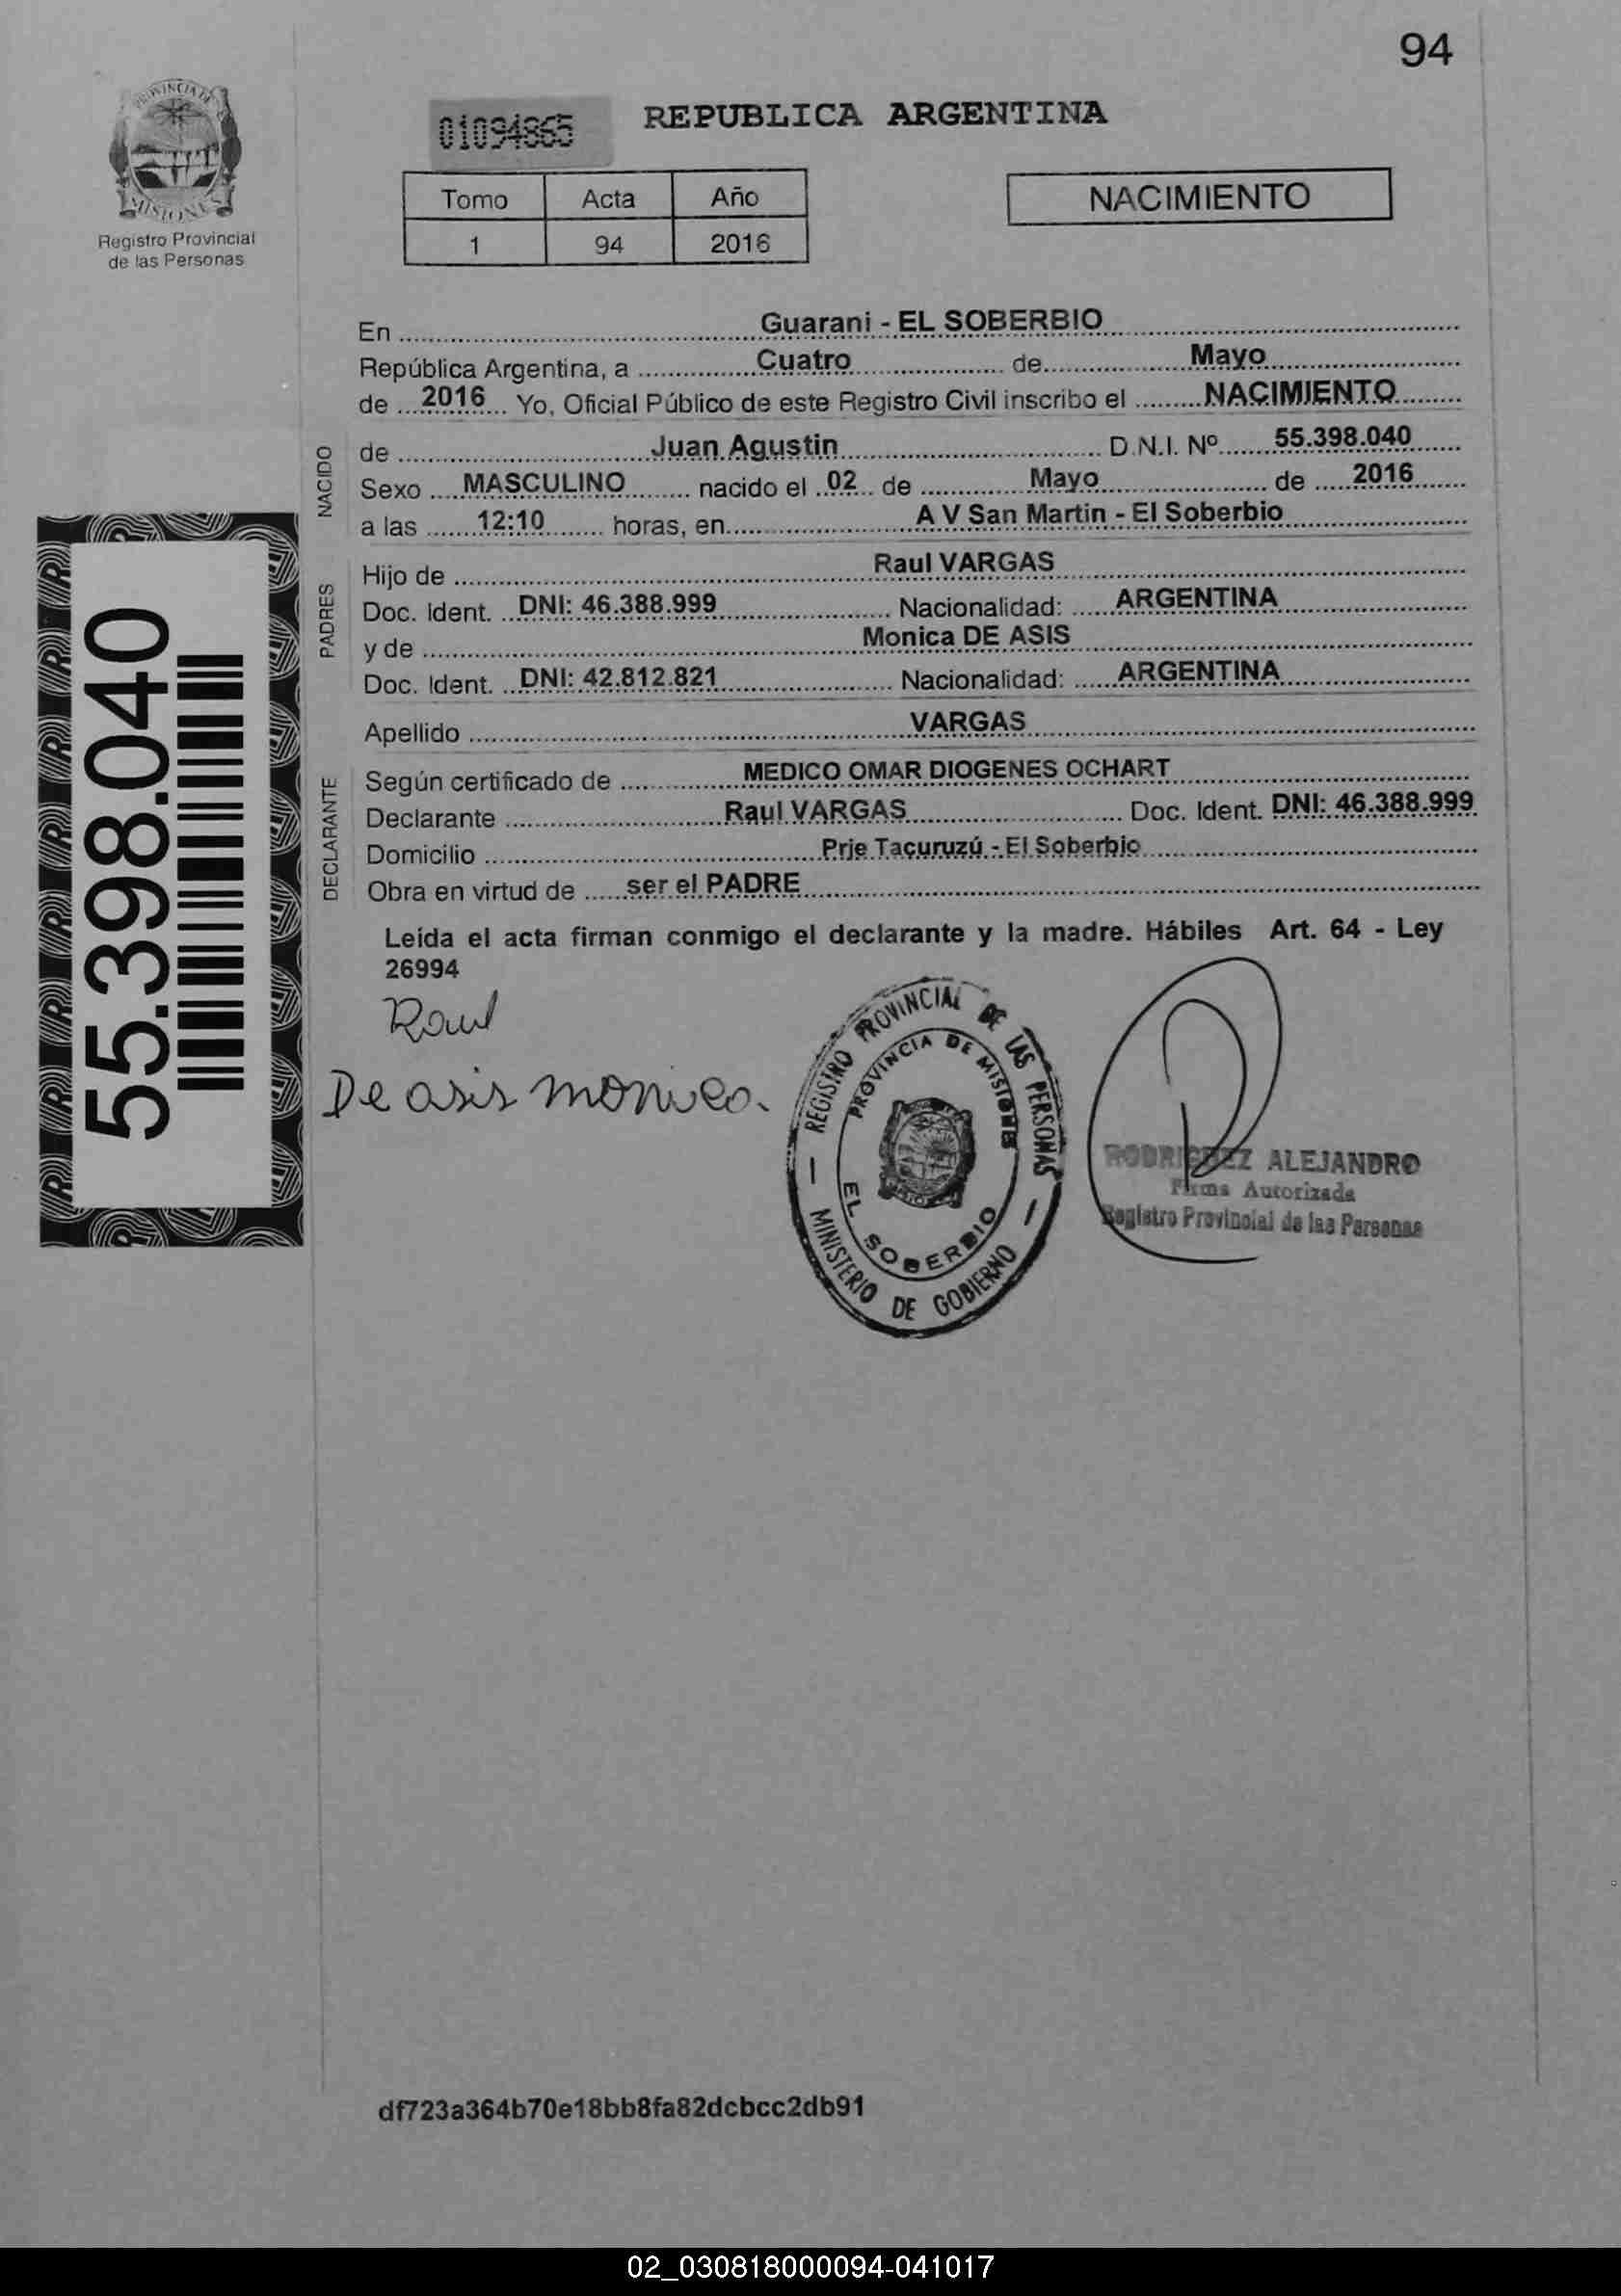 94
PROVINCIA DE
MISIONES
Registro Provincial
de las Personas
01094865
REPUBLICA ARGENTINA
Tomo Acta Año
1 94 2016
NACIMIENTO
En Guarani - EL SOBERBIO
República Argentina, a Cuatro de Mayo
de 2016 Yo, Oficial Público de este Registro Civil inscribo el NACIMIENTO
NACIDO
de Juan Agustin D.N.I. Nº 55.398.040
Sexo MASCULINO nacido el 02 de Mayo de 2016
a las 12:10 horas, en A V San Martin - El Soberbio
PADRES
Hijo de Raul VARGAS
Doc. Ident. DNI: 46.388.999 Nacionalidad: ARGENTINA
y de Monica DE ASIS
Doc. Ident. DNI: 42.812.821 Nacionalidad: ARGENTINA
Apellido VARGAS
DECLARANTE
Según certificado de MEDICO OMAR DIOGENES OCHART
Declarante Raul VARGAS Doc. Ident. DNI: 46.388.999
Domicilio Prje Tacuruzú - El Soberbio
Obra en virtud de ser el PADRE
55.398.040
Leída el acta firman conmigo el declarante y la madre. Hábiles Art. 64 - Ley
26994
Raul
De asis monica.
REGISTRO PROVINCIAL DE LAS PERSONAS
PROVINCIA DE MISIONES
EL SOBERBIO
MINISTERIO DE GOBIERNO
RODRIGUEZ ALEJANDRO
Firma Autorizada
Registro Provincial de las Personas
df723a364b70e18bb8fa82dcbcc2db91
02_030818000094-041017